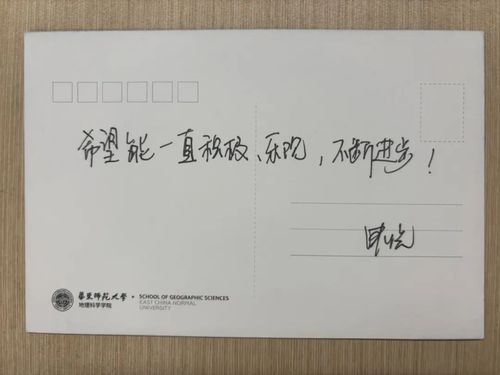 希望能一直积极、乐观，不断进步！
华东师范大学
地理科学学院
SCHOOL OF GEOGRAPHIC SCIENCES
EAST CHINA NORMAL
UNIVERSITY